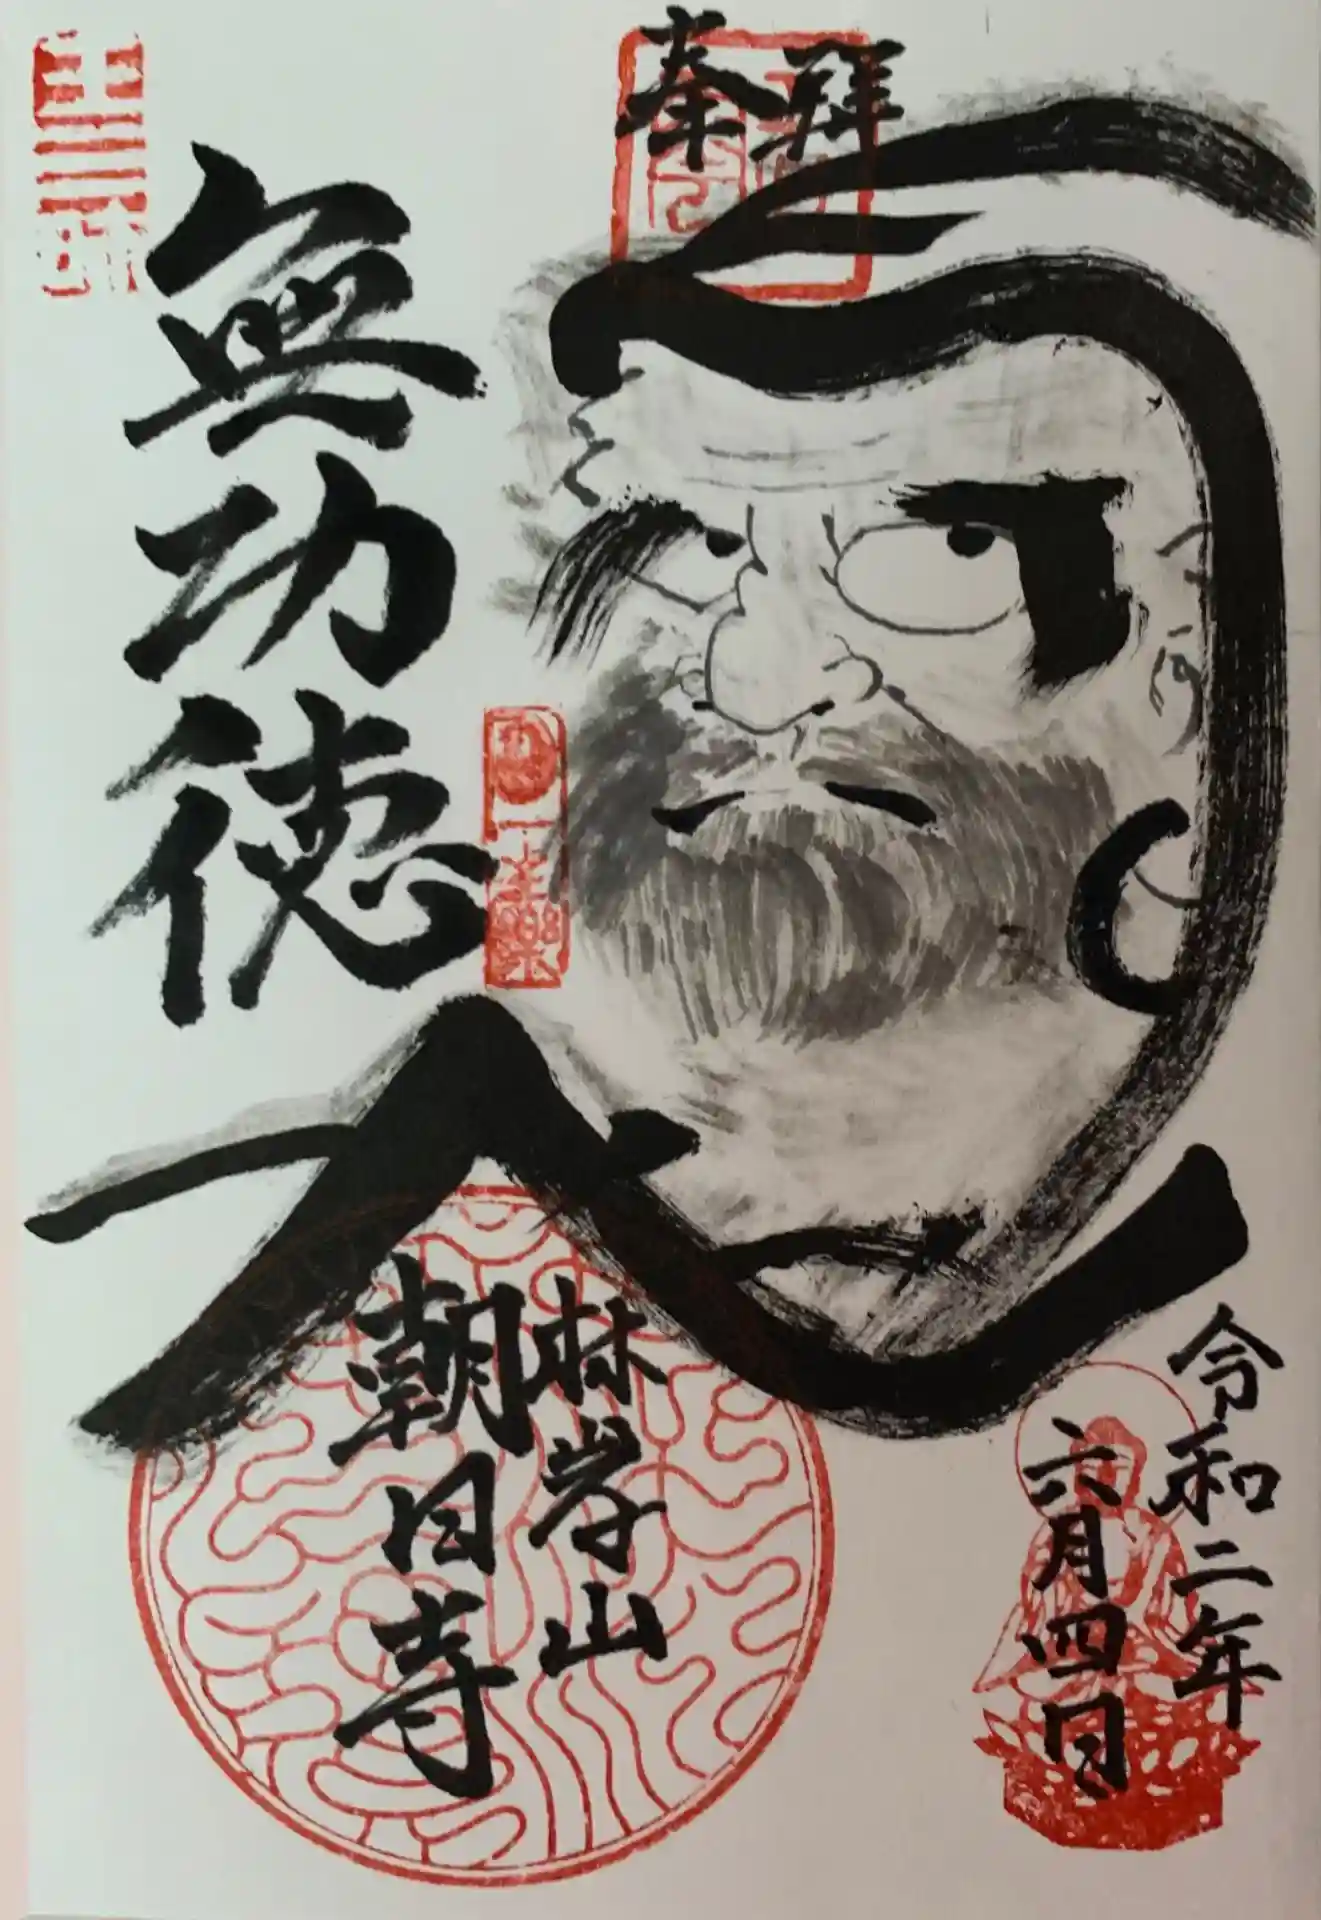 奉拜
令和二年
六月四日
無功徳
林学山
朝日寺